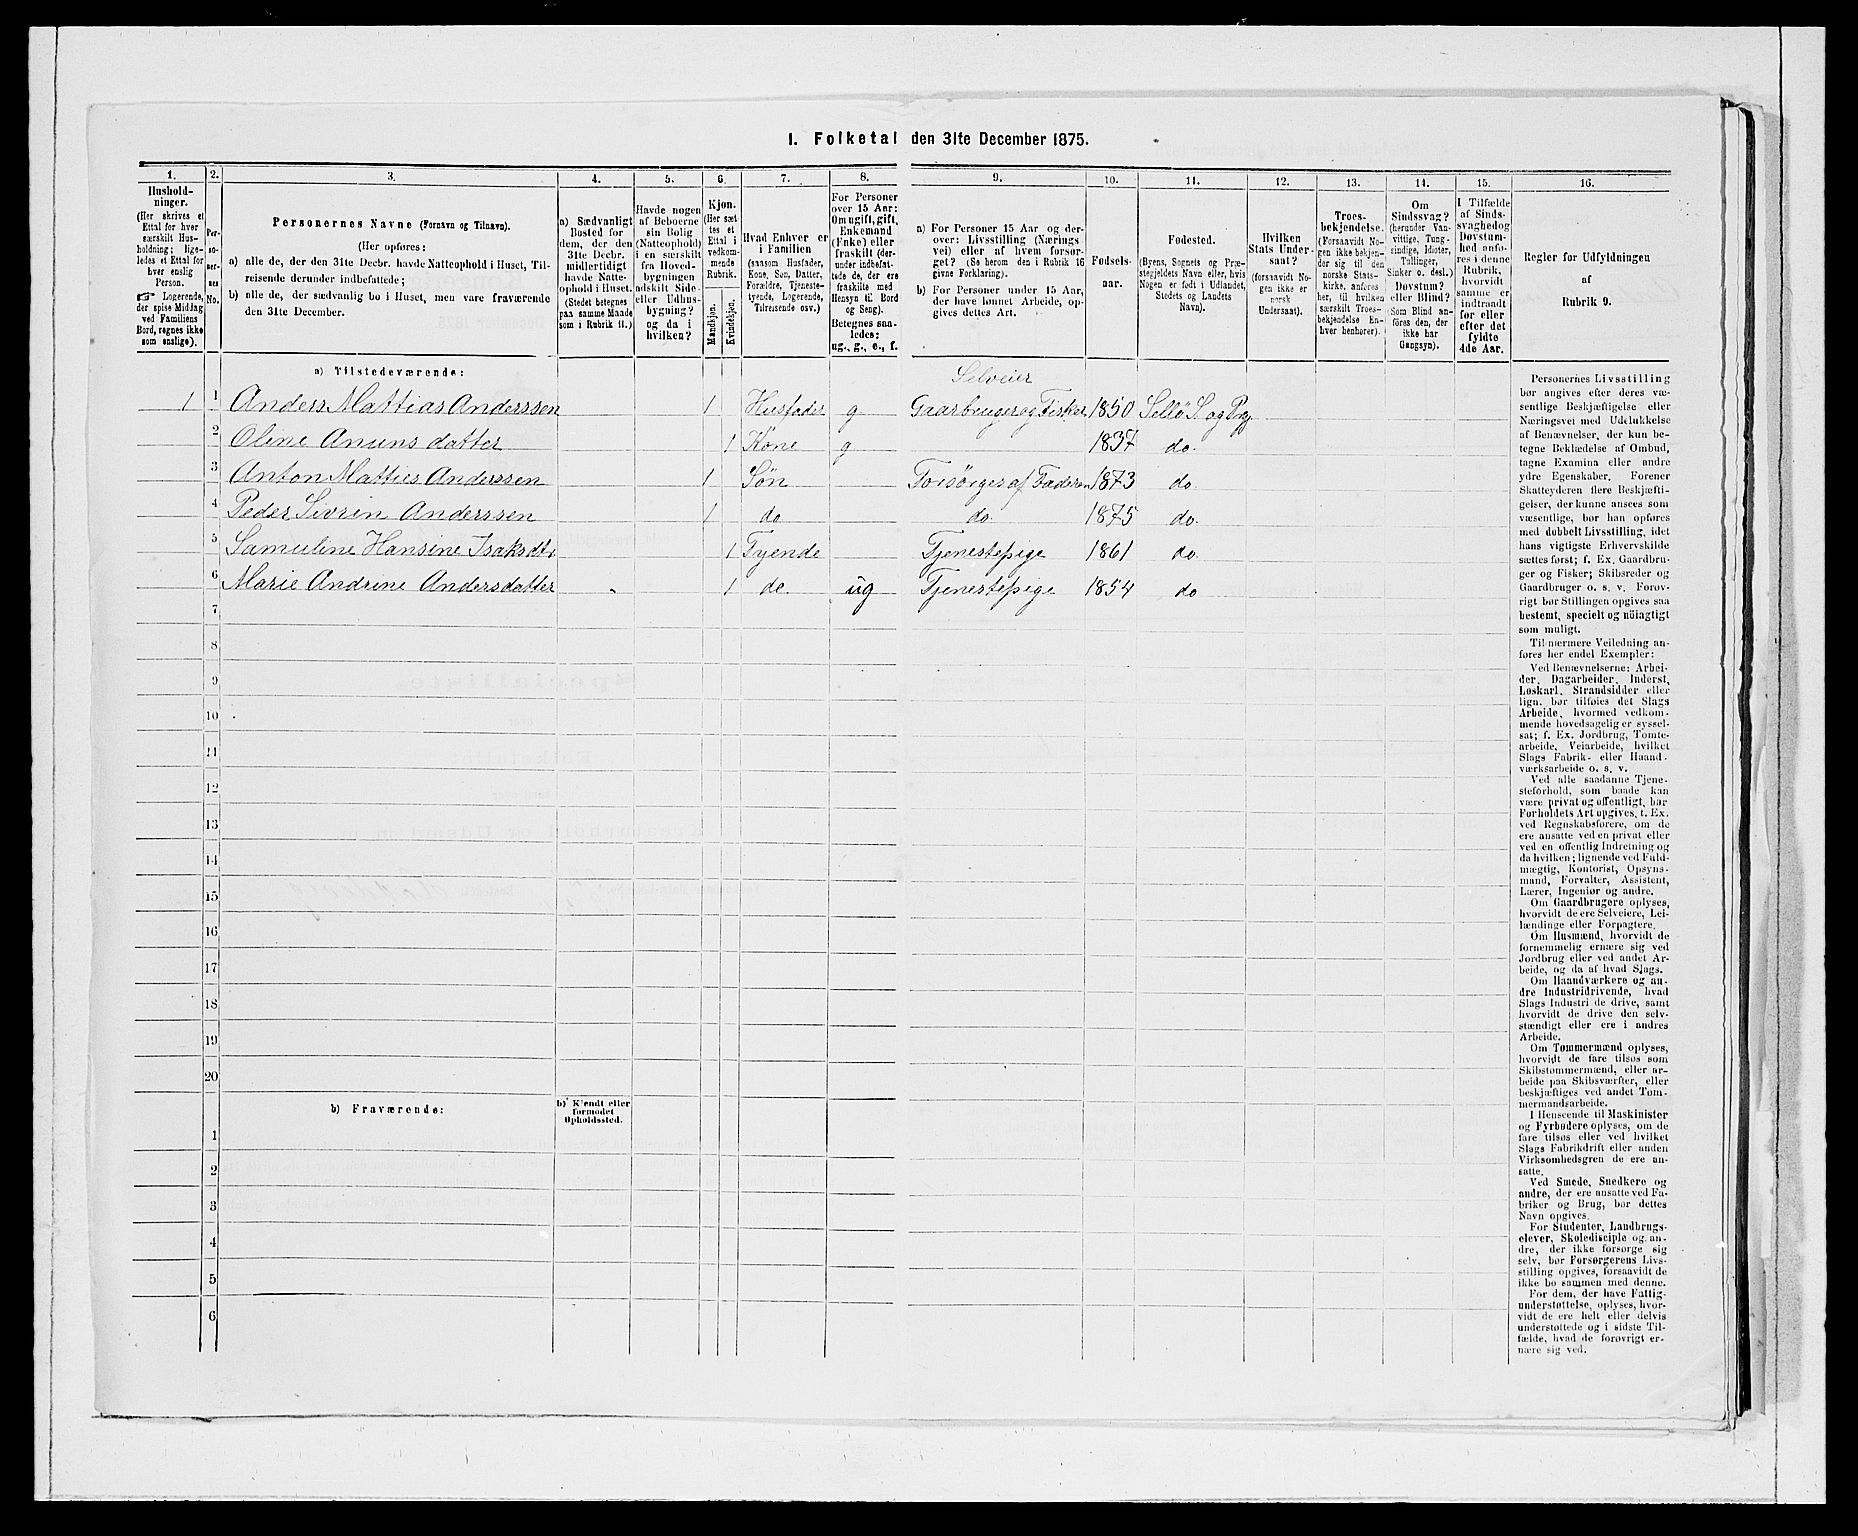 I. Folketal den 31te December 1875.
1. 2. 3. 4. 5. 6. 7. 8. 9. 10. 11. 12. 13. 14. 15. 16.
Husholdninger. (Her skrives et Ettal for hver særskilt Husholdning; ligeledes et Ettal for hver enslig Person.
☞ Logerende, der spise Middag ved Familiens Bord, regnes ikke som enslige).
Personernes No.
Personernes Navne (Fornavn og Tilnavn).
(Her opføres:
a) alle de, der den 31te Decbr. havde Natteophold i Huset, Tilreisende derunder indbefattede;
b) alle de, der sædvanlig bo i Huset, men vare fraværende den 31te December.
a) Sædvanligt Bosted for dem, der den 31te Decbr. midlertidigt havde Natteophold i Huset. (Stedet betegnes paa samme Maade som i Rubrik 11.)
Havde nogen af Beboerne sin Bolig (Natteophold) i en særskilt fra Hovedbygningen adskilt Side- eller Udhusbygning? og da i hvilken?
Kjøn. (Her sættes et Ettal i vedkommende Rubrik.
Mandkjøn. Kvindekjøn.
Hvad Enhver er i Familien (saasom Husfader, Kone, Søn, Datter, Forældre, Tjenestetyende, Logerende, Tilreisende osv.)
For Personer over 15 Aar: Om ugift, gift, Enkemand (Enke) eller fraskilt (derunder indbefattede, de, der ere fraskilte med Hensyn til Bord og Seng). Betegnes saaledes: ug., g., e., f.
a) For Personer 15 Aar og derover: Livsstilling (Næringsvei) eller af hvem forsørget? (Se herom den i Rubrik 16 givne Forklaring).
b) For Personer under 15 Aar, der have lønnet Arbeide, opgives dettes Art.
Fødselsaar.
Fødested. (Byens, Sognets og Præstegjeldets Navn eller, hvis Nogen er født i Udlandet, Stedets og Landets Navn).
Hvilken Stats Undersaat? (forsaavidt Nogen ikke er norsk Undersaat).
Troesbekjendelse. (Forsaavidt Nogen ikke bekjender sig til den norske Statskirke, anføres her, til hvilken særskilt Troesbekjendelse Enhver henhører).
Om Sindssvag? (herunder Vanvittige, Tungsindige, Idioter, Tullinger, Sinker o. desl.) Døvstum? eller Blind? (Som Blind anføres den, der ikke har Gangsyn).
I Tilfælde af Sindssvaghed og Døvstumhed anføres i denne Rubrik, hvorvidt samme er indtraadt før eller efter det fyldte 4de Aar.
Regler for Udfyldningen af Rubrik 9.
a) Tilstedeværende:
Selveier
1 1 Anders Mattias Anderssen 1 Husfader g Gaarbruger og Fisker 1850 Sellö S. og Prg
2 Oline Anuns datter 1 Kone g 1837 do.
3 Anton Matties Anderssen 1 Søn Forsörges af Faderen 1873 do
4 Peder Sivrin Anderssen 1 do do. 1875 do.
5 Samuline Hansine Isaksdtr 1 Tyende Tjenestepige 1861 do.
6 Marie Andrine Andersdatter 1 do. ug Tjenestepige 1854 do
7
8
9
10
11
12
13
14
15
16
17
18
19
20
b) Fraværende: b) Kjendt eller formodet Opholdssted.
1
2
3
4
5
6
Personernes Livsstilling
bør angives efter deres væ-
sentlige Beskjæftigelse eller
Næringsvei med Udelukkelse
af Benævnelser, der kun be-
tegne Beklædelse af Ombud,
tagne Examina eller andre
ydre Egenskaber. Forener
Skatteyderen flere Beskjæfti-
gelser, der kunne ansees som
væsentlige, bør han opføres
med dobbelt Livsstilling, idet
hans vigtigste Erhvervskilde
sættes først; f. Ex. Gaardbru-
ger og Fisker; Skibsreder og
Gaardbruger o. s. v. Forøv-
rigt bør Stillingen opgives saa
bestemt, specielt og nöiagtigt
som muligt.
Til nærmere Veiledning an-
føres her endel Exempler:
Ved Benævnelserne: Arbei-
der, Dagarbeider, Inderst,
Løskarl, Strandsidder eller
lign. bør tilføies det Slags
Arbeide, hvormed vedkom-
mende hovedsagelig er syssel-
sat; f. Ex. Jordbrug, Tomte-
arbeide, Veiarbeide, hvilket
Slags Fabrik- eller Haand-
værksarbeide o. s. v.
Ved alle saadanne Tjene-
steforhold, som baade kan
være privat og offentligt, bør
Forholdets Art opgives, t. Ex.
ved Regnskabsførere, om de
ere ansatte ved en privat eller
ved en offentlig Indretning og
da hvilken; lignende ved Fuld-
mægtig, Kontorist, Opsyns-
mand, Forvalter, Assistent,
Lærer, Ingeniør og andre.
Om Gaardbrugere oplyses,
hvorvidt de ere Selveiere, Lei-
lændinge eller Forpagtere.
Om Husmænd, hvorvidt de
fornemmelig ernære sig ved
Jordbrug eller ved andet Ar-
beide, og da af hvad Slags.
Om Haandværkere og an-
dre Industridrivende, hvad
Slags Industri de drive, samt
hvorvidt de drive den selv-
stændigt eller ere i andres
Arbeide.
Om Tømmermænd oplyses,
hvorvidt de fare tilsøs som
Skibstømmermænd, eller ar-
beide paa Skibsværfter, eller
beskjæftiges ved andet Tøm-
mermandsarbeide.
I Henseende til Maskinister
og Fyrbødere oplyses, om de
fare tilsøs eller ved hvilket
Slags Fabrikdrift eller anden
Virksomhedsgren de ere an-
satte.
Ved Smede, Snedkere og
andre, der ere ansatte ved Fa-
briker og Brug, bør dettes
Navn opgives.
For Studenter, Landbrugs-
elever, Skoledisciple og an-
dre, der ikke forsørge sig
selv, bør Forsørgerens Livs-
stilling opgives, forsaavidt de
ikke bo sammen med denne.
For dem, der have Fattig-
understøttelse, oplyses, hvor-
vidt de ere helt eller delvis
understøttede og i sidste Til-
fælde, hvad de forøvrigt er-
nære sig ved.